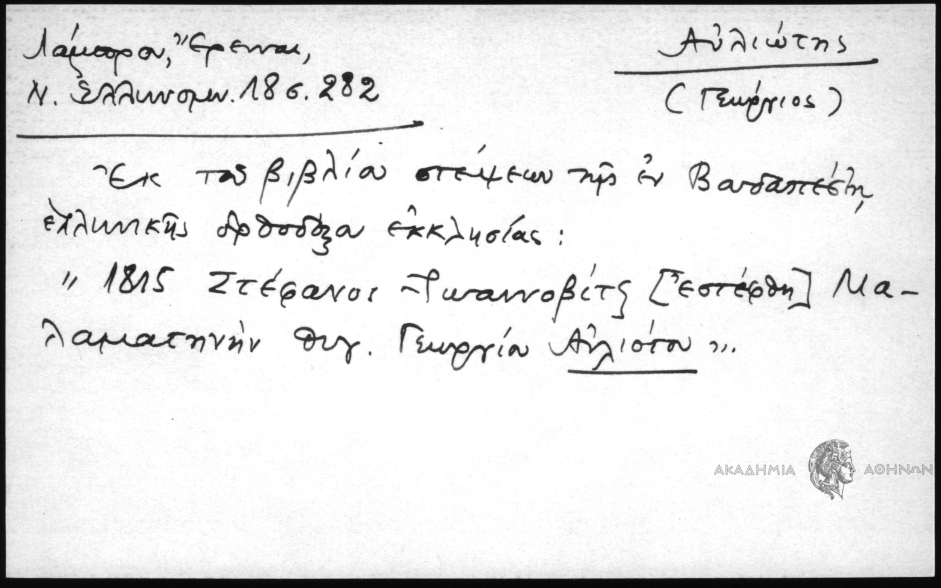 Λάμπρου, Ἔρευναι,
Ν. Ἑλληνομν. 18 σ. 282
Αὐλιώτης
(Γεώργιος)
Ἐκ τοῦ βιβλίου στέψεων τῆς ἐν Βουδαπέστῃ
ἑλληνικῆς ὀρθοδόξου ἐκκλησίας:
„ 1815 Στέφανος Ἰωαννοβίτς [ἐστέφθη] Μα-
λαματηνὴν θυγ. Γεωργίου Αὐλιότου „.
ΑΚΑΔΗΜΙΑ ΑΘΗΝΩΝ